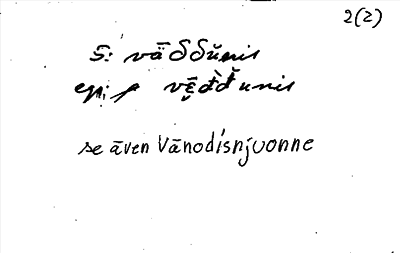 2(2)
S: vāδδŭnis
vę̄đđunis
se även Vānodísnjuonne